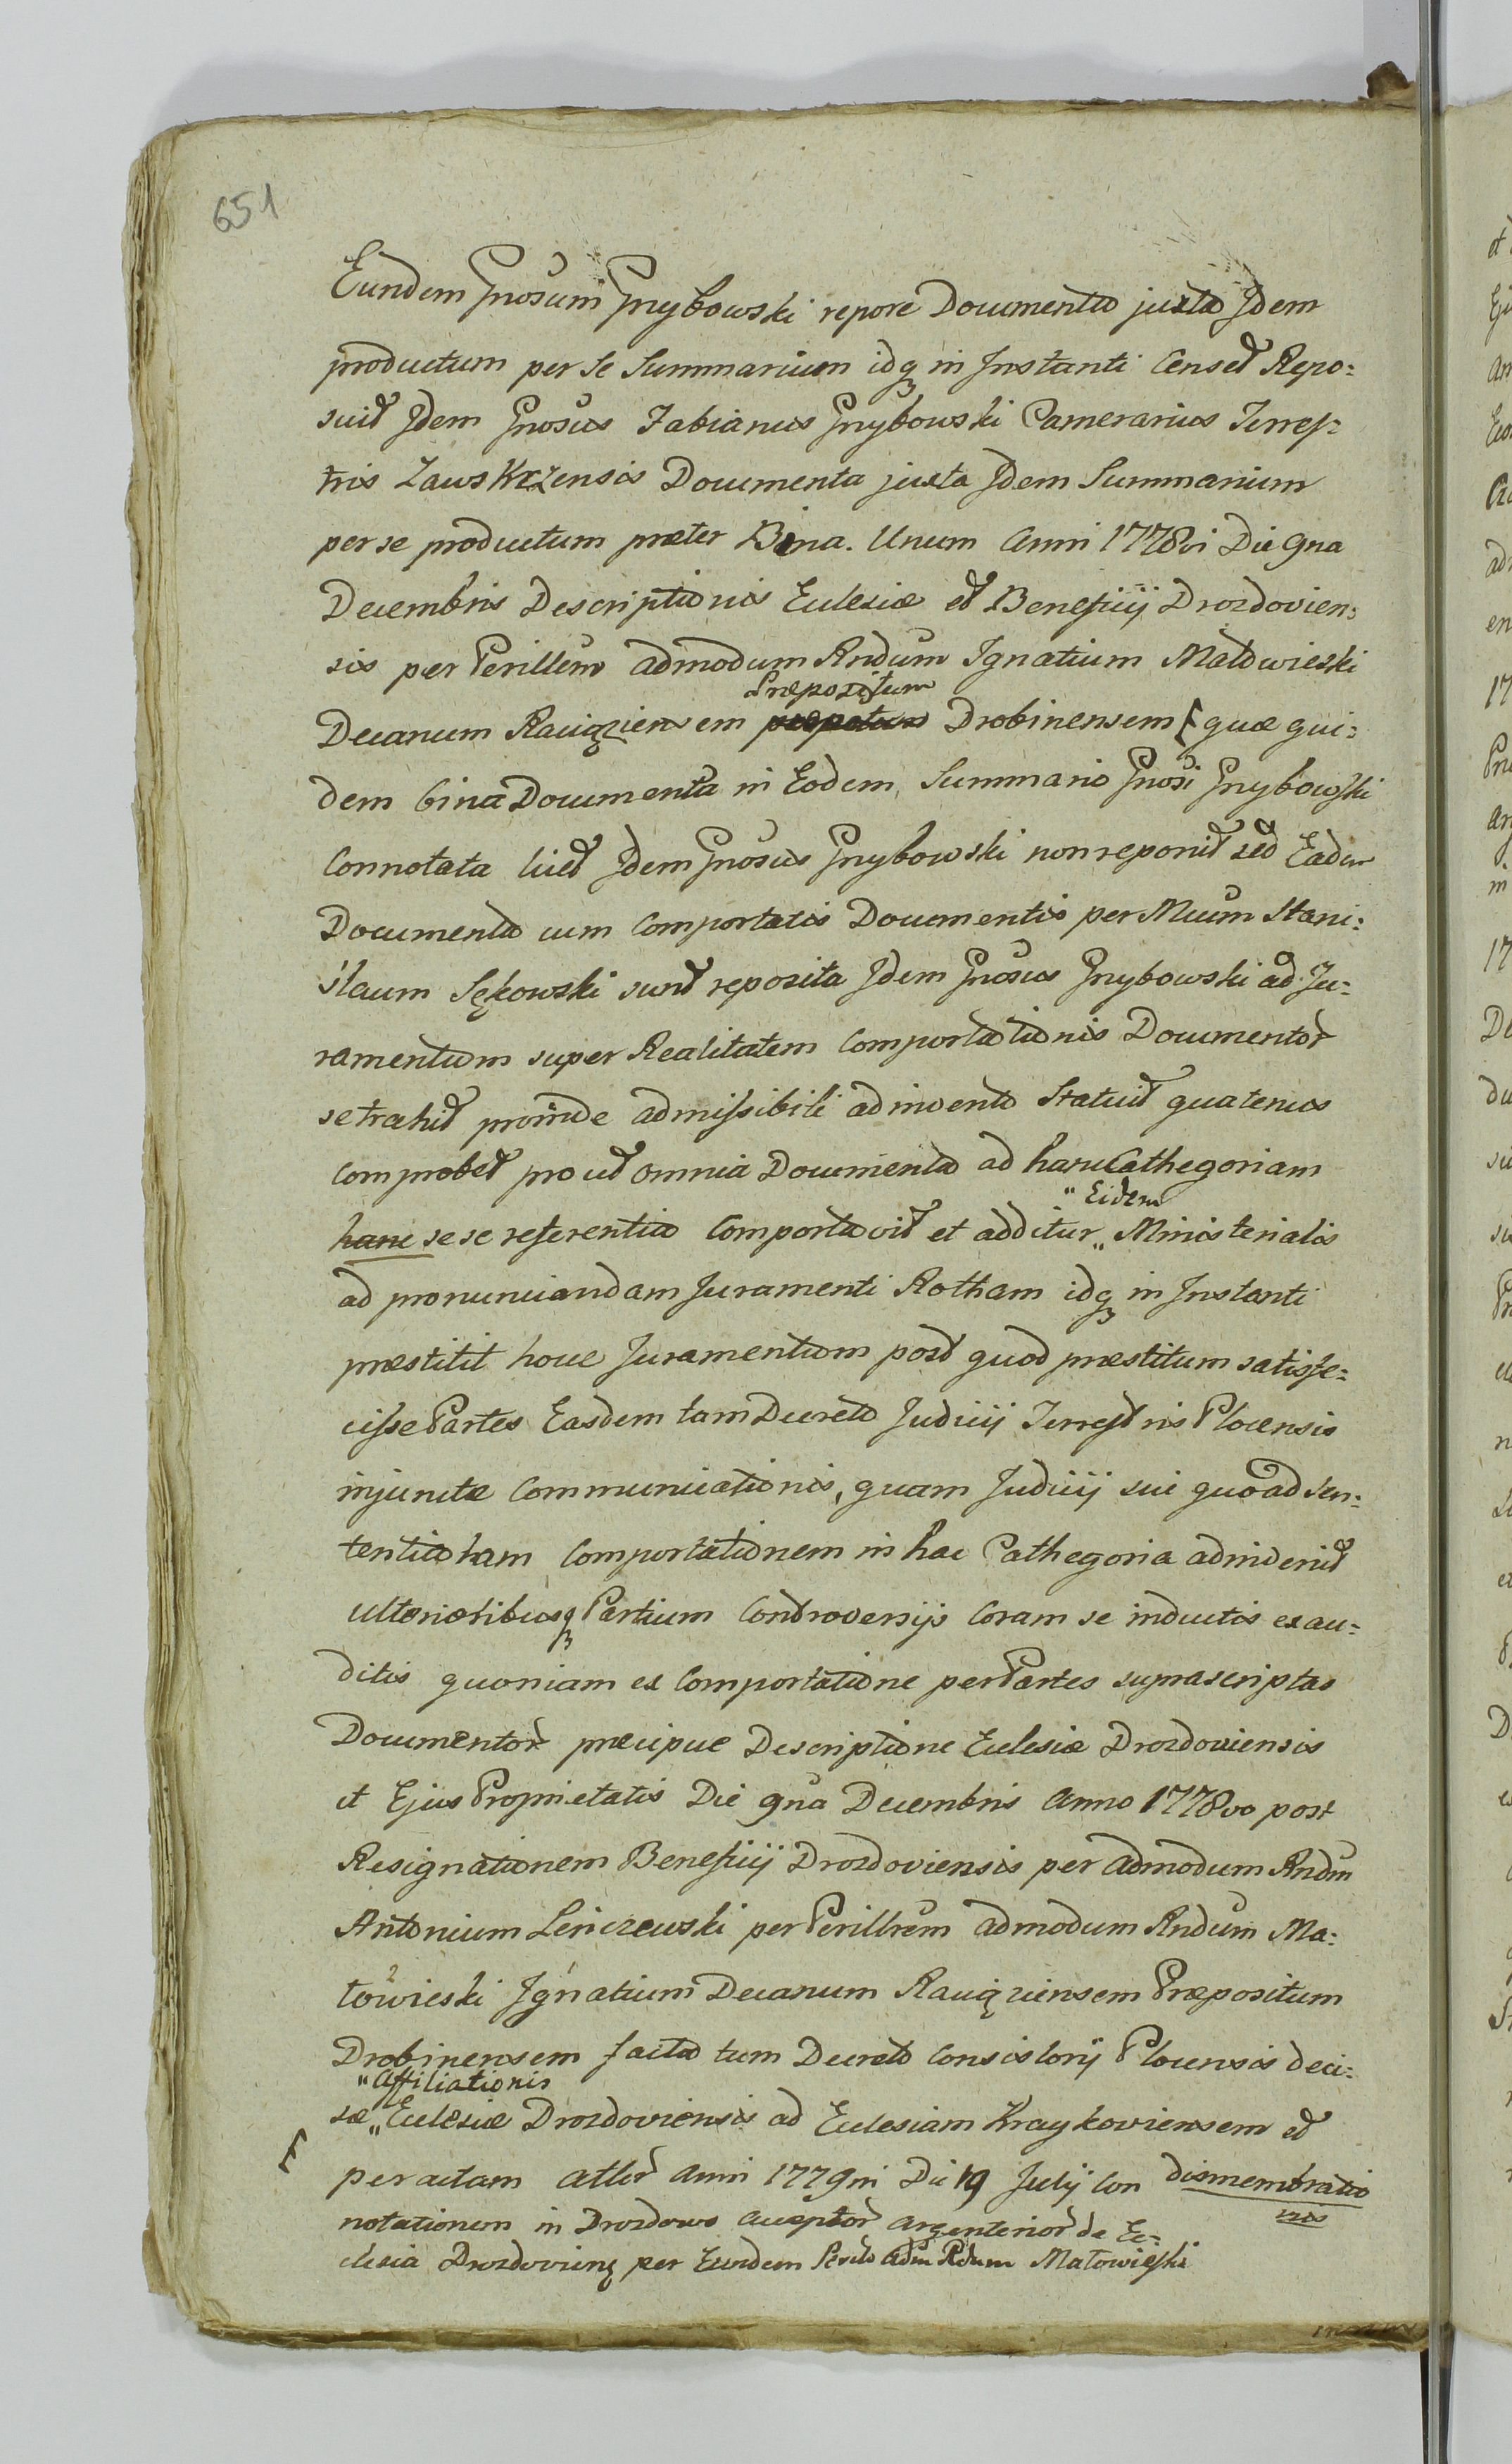 651
Eundem Gnosum Grzybowski repore Documenta juxta Idem
productum per se Summarium idq in Instanti Censet Repo:
suit Idem Gnosus Fabianus Grzybowski Camerarius Terres:
tris Zawskrzensis Documenta juxta Idem Summarium
per se productum præter Bina. Unum Anni 1778vi Die 9na
Decembris Descriptionis Eclesiæ et Beneficij Drozdovien:
sis per Perillem admodum Rndum Ignatium Małowieski
Præpositum
Decanum Raciąziensem Drobinensem [ quæ qui:
dem bina Documenta in Eodem Summario Gnosi Grzybowski
Connotata licet Idem Gnosus Grzybowski non reponit sed Eadem
Documenta cum Comportatis Documentis per Mcum Stani:
slaum Sękowski sunt reposita Idem Gnosus Grzybowski ad Ju:
ramentum super Realitatem Comportationis Documentor
se trahit proinde admissibili adinvento Statuit quatenus
comprobet prout omnia Documenta ad hanc Cathegoriam
" Eidem
hanc sese referentia Comportavit et additur " Ministerialis
ad pronunciandam Juramenti Rotham idq in Instanti
præstitit hocce Juramentum post quod præstitum satisfe:
cisse Partes Easdem tam Decreto Judicij Terrestris Plocensis
injunctæ Communicationis, quam Judicij sui quoad Sen:
tentiaham Comportationem in hac Cathegoria adinvenit
ulterioribusq Partium Controversijs Coram se inductis exau:
ditis quoniam ex Comportatione per Partes suprascriptas
Documentor præcipue Descriptione Eclesiæ Drozdoviensis
et Ejus Proprietatis Die 9na Decembris Anno 1778vo post
Resignationem Beneficij Drozdoviensis per admodum Rndm
Antonium Lenczewski per Perillrem admodum Rndum Ma:
łowieski Ignatium Decanum Raciąziensem Præpositum
Drobinensem facta tum Decreto Consistorij Plocensis deci:
" Affiliationis
sæ " Eclesiæ Drozdoviensis ad Eclesiam Krajkoviensem et
[ per actam Anni 1779ni Die 19 Julij Con dismembratio
nis
notationem in Drozdowo acceptor argenterior de Ec:
clesia Drozdoviens per Eundem Adm Rdum Małowieski